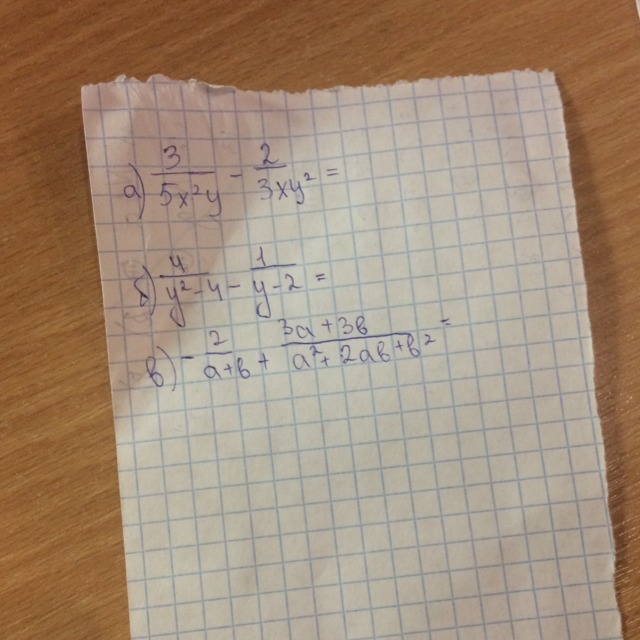 а) 3/5x²y - 2/3xy² =
б) 4/y²-4 - 1/y-2 =
в) - 2/a+b + 3a+3b/a²+2ab+b² =